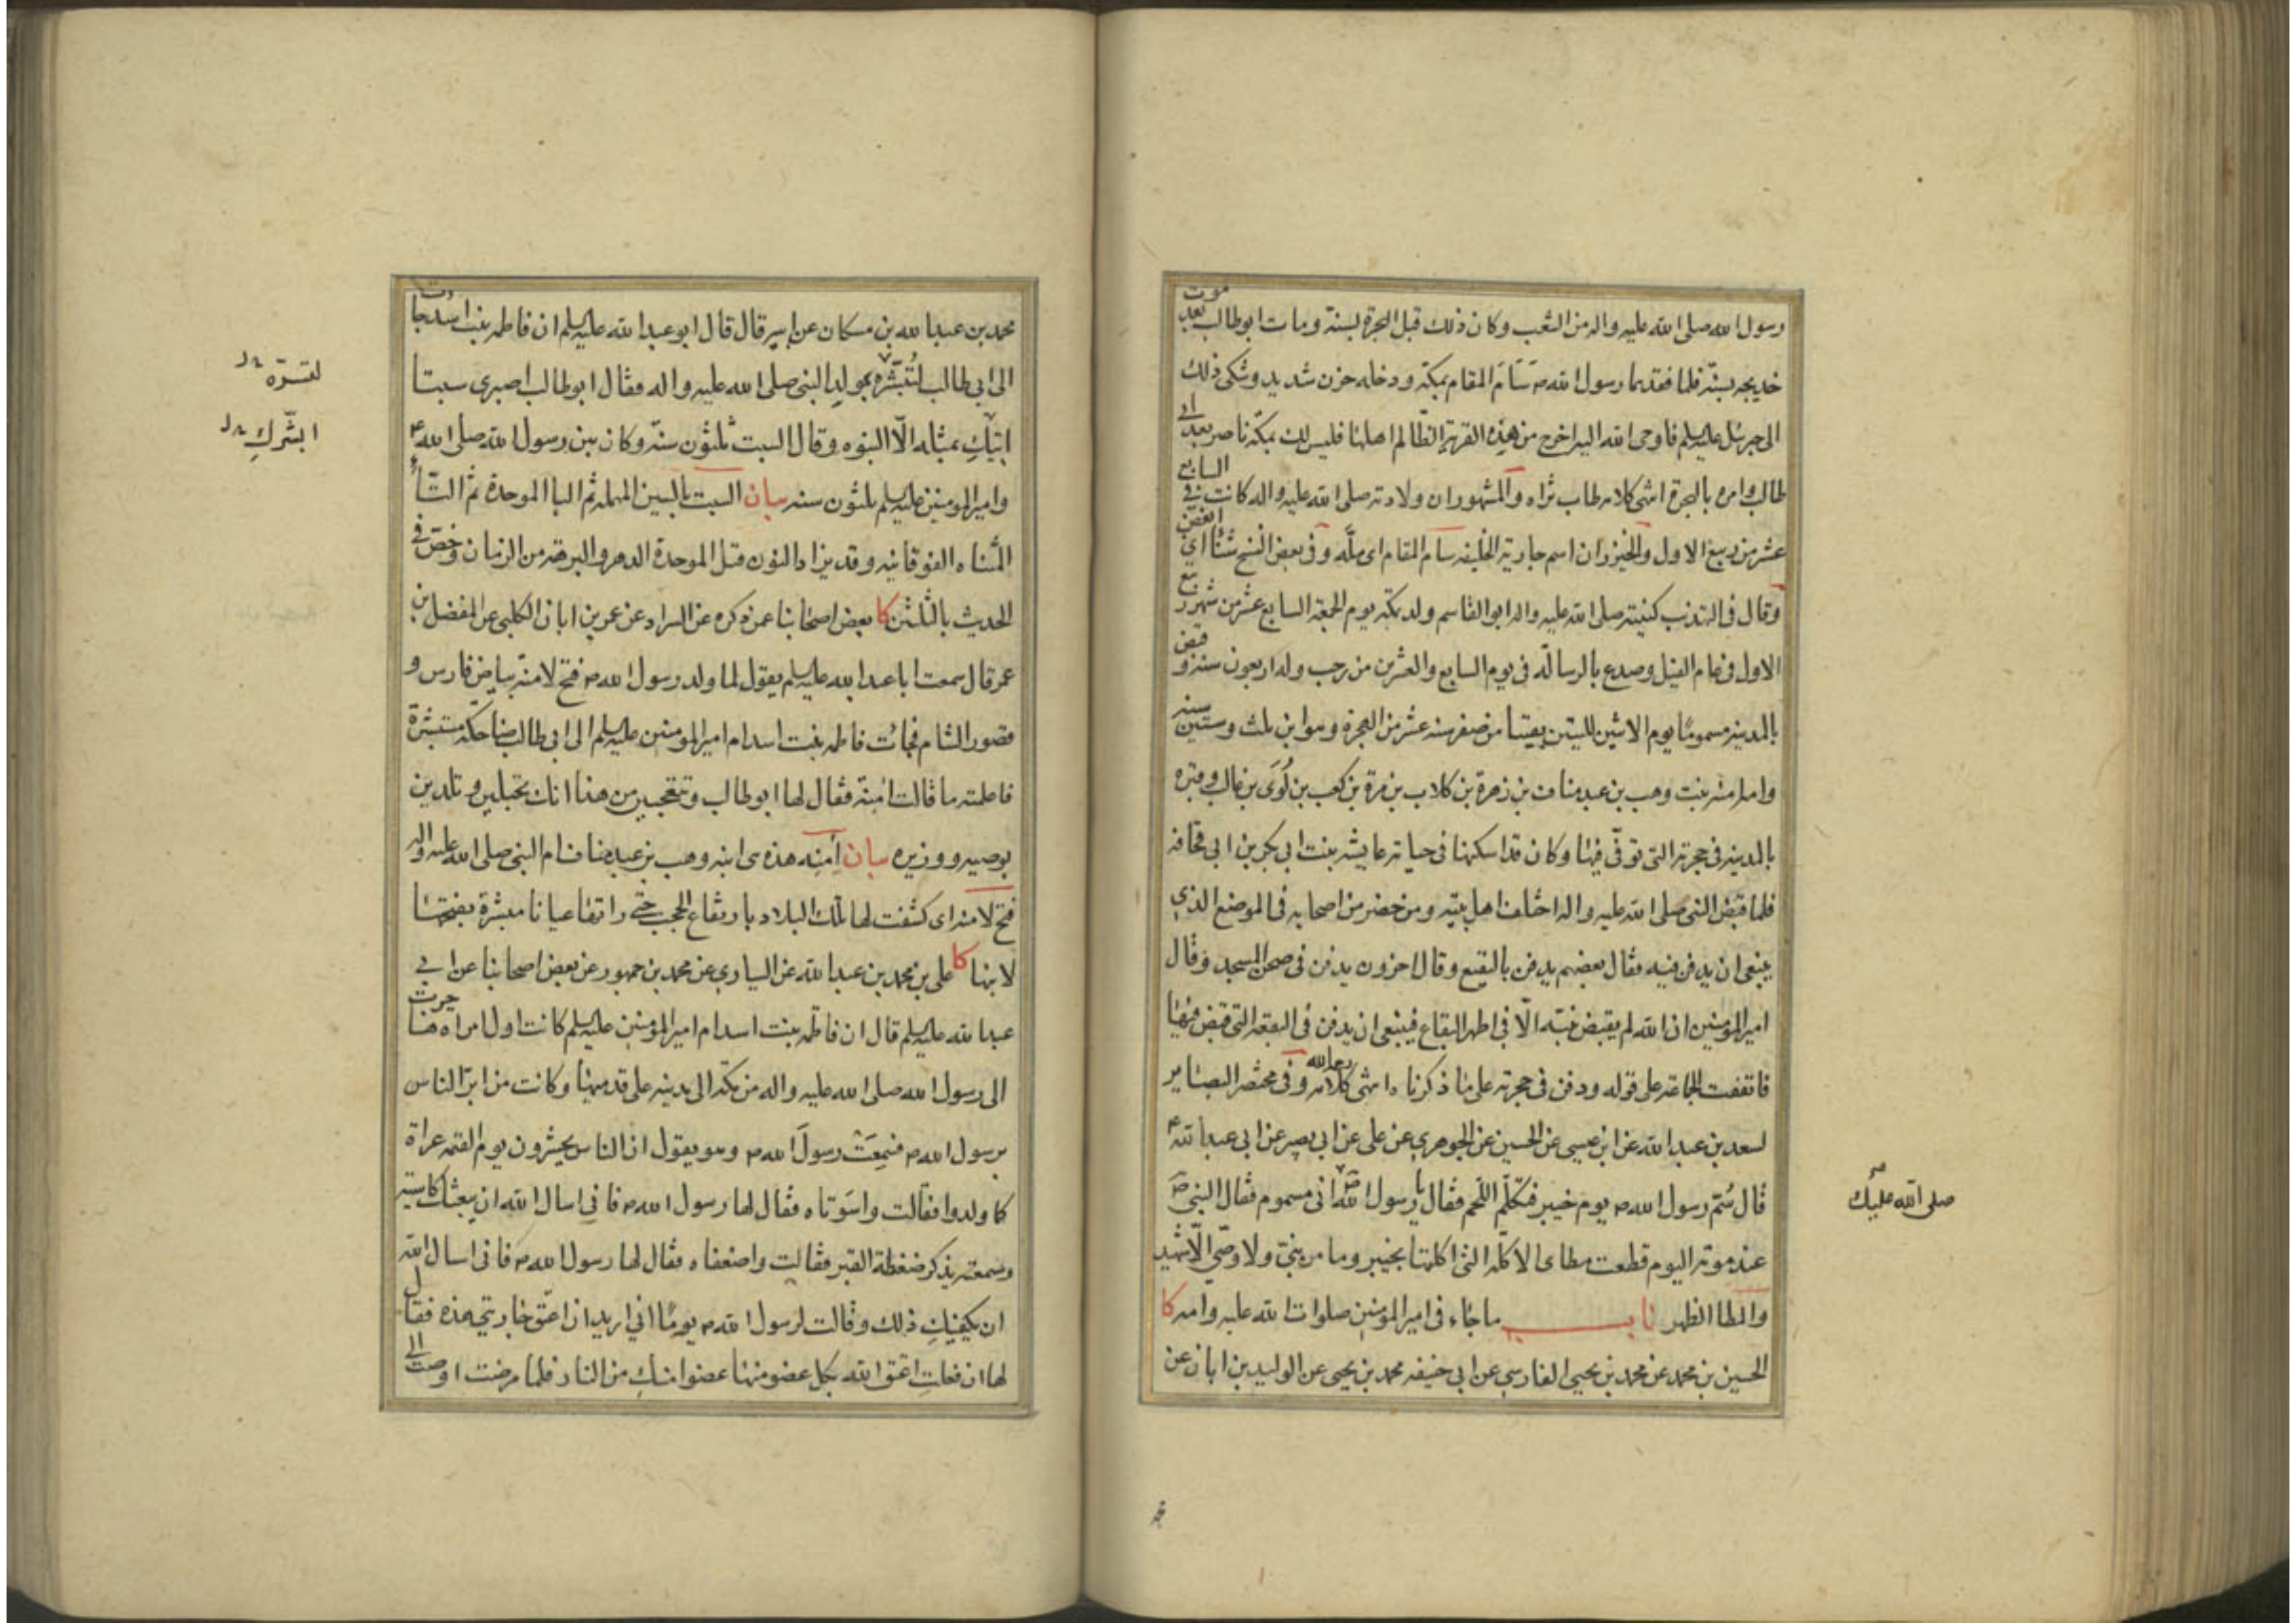 رسول الله صلى الله عليه واله من الشعب وكان ذلك قبل الهجرة بسنة ومات ابوطالب بعد موت
خديجه بسنة فلما فقدهما رسول الله ص سَنَأ المقام بمكة ودخله حزن شديد وشكى ذلك
الى جبرئيل عليه السلم فاوحى الله اليه اخرج من هذه القرية الظالم اهلها فليس لك بمكة ناصر بعد ابى
طالب وامره بالهجرة انتهى كلامه طاب ثراه والمشهور ان ولادته صلى الله عليه واله كانت في السابع
عشر من ربيع الاول والخيزران اسم جارية الخليفه سام المقام اى ملّه وفى بعض النسخ شنأ اى ابغض
وقال فى التهذيب كنيته صلى الله عليه واله ابوالقاسم ولد بمكة يوم الجمعة السابع عشر من شهر ربيع
الاول فى عام الفيل وصدع بالرسالة فى يوم السابع والعشرين من رجب وله اربعون سنة وقبض
بالمدينة مسموما يوم الاثنين لليلتين بقيتا من صفر سنه عشر من الهجرة وهو ابن ثلث وستين سنه
وامه امنه بنت وهب بن عبد مناف بن زهرة بن كلاب بن مرة بن كعب بن لُوَى بن غالب وقبره
بالمدينه فى حجرته التى توفّى فيها وكان قد اسكنها فى حياته عايشه بنت ابى بكر بن ابى قحافه
فلما قبض النبى صلى الله عليه واله اختلف اهل بيته ومن حضر من اصحابه فى الموضع الذى
ينبغى ان يدفن فيه فقال بعضهم يدفن بالبقيع وقال اخرون يدفن فى صحن المسجد وقال
امير المؤمنين ان الله لم يقبض نبيّه الّا فى اطهر البقاع فينبغى ان يدفن فى البقعة التى قبض فيها
فاتفقت الجماعة على قوله ودفن فى حجرته على ما ذكرناه انتهى كلامه رحمه الله وفى مختصر البصاير
لسعد بن عبد الله عن ابن عيسى عن الحسين عن الجوهرى عن على عن ابى بصير عن ابى عبد الله ع
قال سُمّ رسول الله ص يوم خيبر فتكلّم اللحم فقال يا رسول الله انى مسموم فقال النبى ص
صلى الله عليك
عند موته اليوم قطعت مطاى الاكلة التى اكلتها بخيبر وما من نبىّ ولا وصىّ الّا شهيد
والمطا الظهر باب ما جاء فى امير المؤمنين صلوات الله عليه وامه كا
الحسين بن محمد عن محمد بن يحيى الفارسى عن ابى حنيفه محمد بن يحيى عن الوليد بن ابان عن
محمد بن عبد الله بن مسكان عن ابيه قال قال ابو عبد الله عليه السلم ان فاطمه بنت اسد جاءت
الى ابى طالب لتُبشّره بمولد النبى صلى الله عليه واله فقال ابوطالب اصبرى سبتا
لتسرّه
اتيكِ بمثله الّا النبوه وقال السبت ثلثون سنة وكان بين رسول الله صلى الله ع
ابشّركِ
وامير المومنين عليه السلم ثلثون سنه بيان السبت بالسين المهمله ثم البا الموحدة ثم التاء
المثناه الفوقانيه وقد يزاد النون قبل الموحدة الدهر والبرهة من الزمان وخصّ فى
الحديث بالثلثين كا بعض اصحابنا عمن ذكره عن السراد عن عمر بن ابان الكلبى عن المفضل بن
عمر قال سمعت ابا عبد الله عليه السلم يقول لما ولد رسول الله ص فتح لامنة بياض فارس و
قصور الشام فجائت فاطمه بنت اسد ام امير المومنين عليه السلم الى ابى طالب ضاحكة مستبشرة
فاعلمته ما قالت امنة فقال لها ابوطالب وتتعجبين من هذا انك تحبلين وتلدين
بوصيه ووزيره بيان امنه هذه هى ابنه وهب بن عبد مناف ام النبى صلى الله عليه واله
فتح لامنه اى كشفت لها تلك البلاد بارتفاع الحجب حتى راتها عيانا مبشرة بفتحها
لابنها كا على بن محمد بن عبد الله عن السيارى عن محمد بن جمهور عن بعض اصحابنا عن ابى
عبد الله عليه السلم قال ان فاطمه بنت اسد ام امير المؤمنين عليه السلم كانت اول امراه هاجرت
الى رسول الله صلى الله عليه واله من مكّة الى مدينه على قدميها وكانت من ابرّ الناس
برسول الله ص فسَمِعَت رسولَ الله ص وهو يقول ان الناس يحشرون يوم القيمه عراة
كما ولدوا فقالت واسَوتاه فقال لها رسول الله ص فانى اسال الله ان يبعثك كاسيه
وسمعته يذكر ضغطة القبر فقالت واضعفاه فقال لها رسول الله ص فانى اسال الله
ان يكفيكِ ذلك وقالت لرسول الله ص يومًا انى اريد ان اعتق جاريتى هذه فقال
لها ان فعلتِ اعتق الله بكل عضو منها عضوا منكِ من النار فلما مرضت اوصت الى